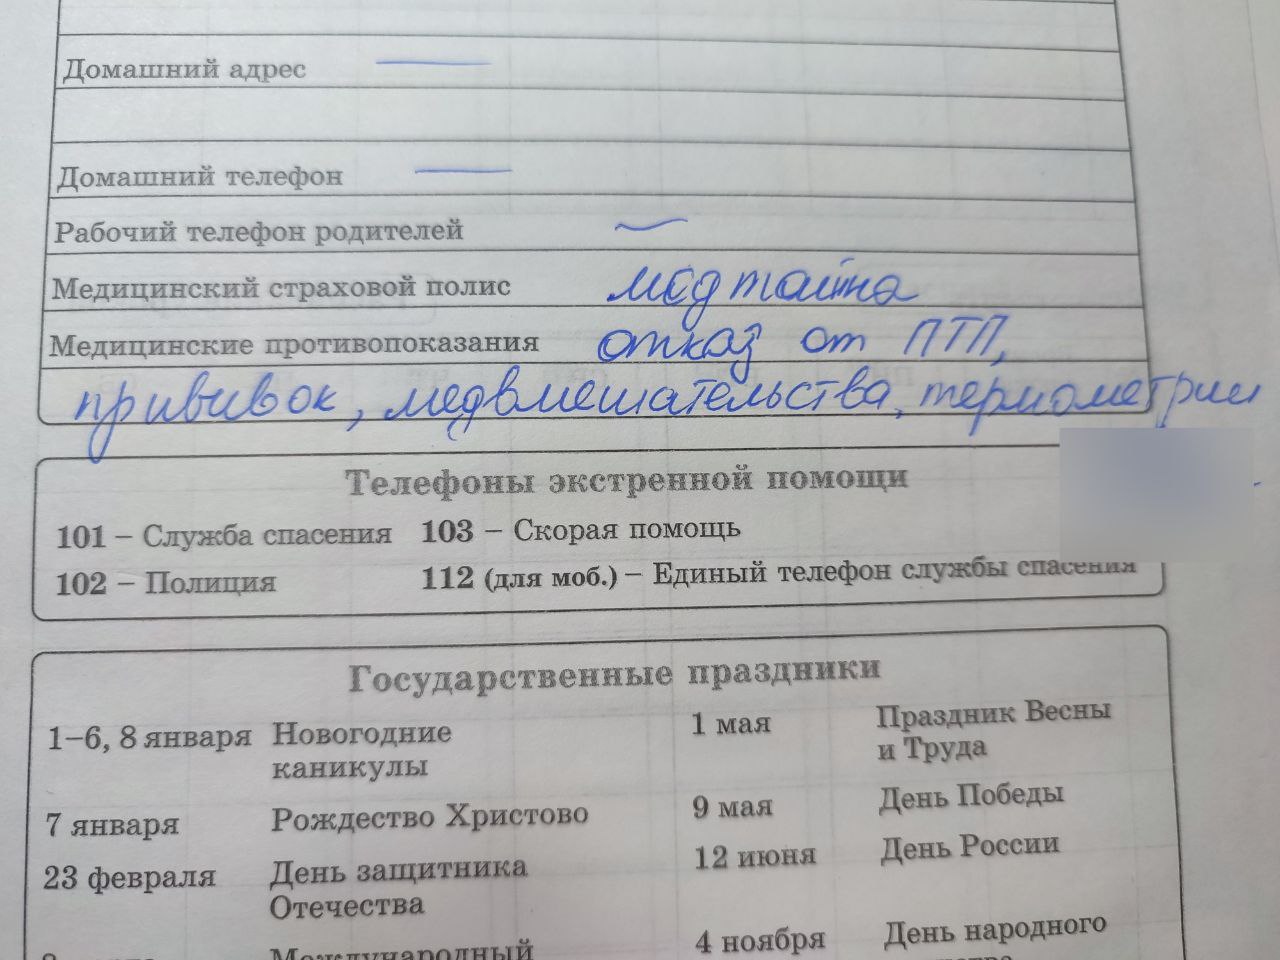 Домашний адрес —
Домашний телефон —
Рабочий телефон родителей ~
Медицинский страховой полис медтайна
Медицинские противопоказания отказ от ПТП,
прививок, медвмешательства, термометрии
Телефоны экстренной помощи
101 – Служба спасения 103 – Скорая помощь
102 – Полиция 112 (для моб.) – Единый телефон службы спасения
Государственные праздники
1–6, 8 января Новогодние каникулы
7 января Рождество Христово
23 февраля День защитника Отечества
Международный
1 мая Праздник Весны и Труда
9 мая День Победы
12 июня День России
4 ноября День народного